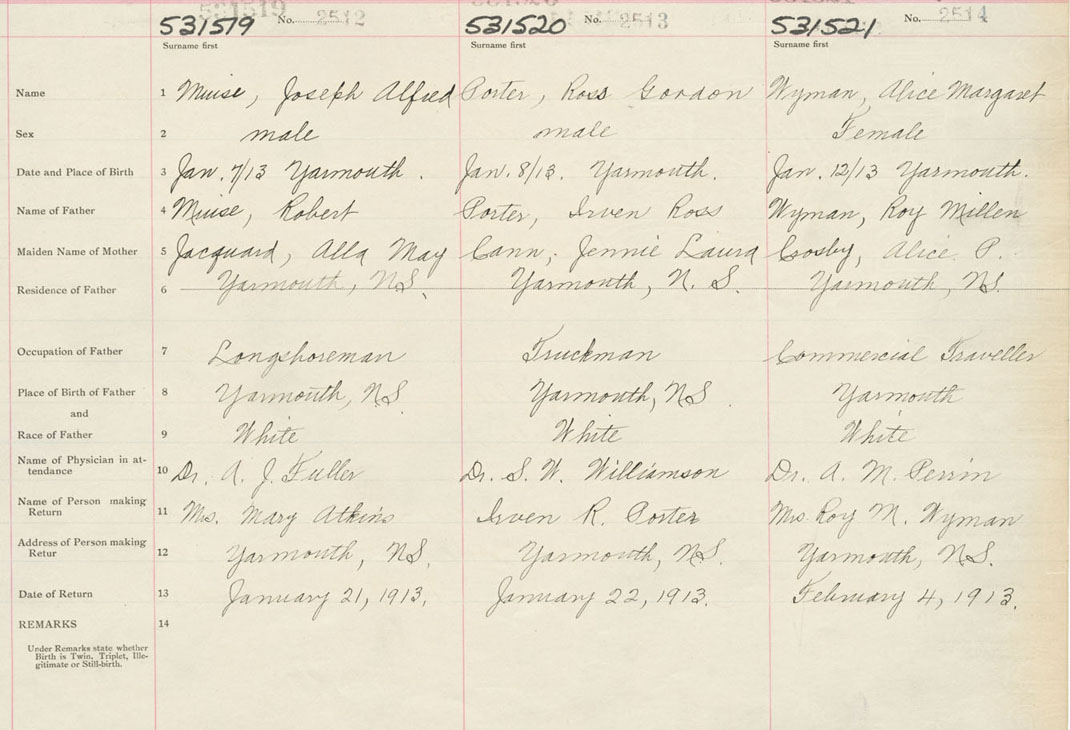 531519 No. 2512 531520 No. 2513 531521 No. 2514
Surname first Surname first Surname first
Name 1 Muise, Joseph Alfred Porter, Ross Gordon Wyman, Alice Margaret
Sex 2 male male Female
Date and Place of Birth 3 Jan. 7/13 Yarmouth. Jan. 8/13. Yarmouth. Jan. 12/13 Yarmouth.
Name of Father 4 Muise, Robert Porter, Irven Ross Wyman, Roy Millen
Maiden Name of Mother 5 Jacquard, Alla May Cann, Jennie Laura Crosby, Alice P.
Residence of Father 6 Yarmouth, NS. Yarmouth, N. S. Yarmouth, NS.
Occupation of Father 7 Longshoreman Truckman Commercial Traveller
Place of Birth of Father 8 Yarmouth, N.S. Yarmouth, N.S. Yarmouth
and
Race of Father 9 White White White
Name of Physician in at-
tendance 10 Dr. A. J. Fuller Dr. S. W. Williamson Dr. A. M. Perrin
Name of Person making
Return 11 Mrs. Mary Atkins Irven R. Porter Mrs. Roy M. Wyman
Address of Person making
Retur 12 Yarmouth, NS. Yarmouth, NS. Yarmouth, NS.
Date of Return 13 January 21, 1913. January 22, 1913. February 4, 1913.
REMARKS 14
Under Remarks state whether
Birth is Twin, Triplet, Ille-
gitimate or Still-birth.